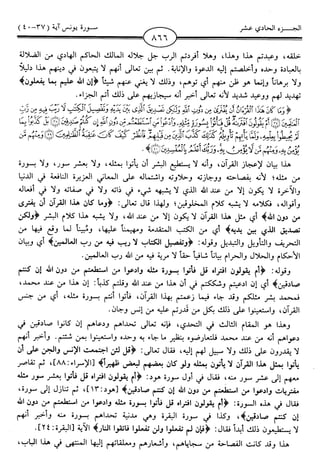 الجـــزء الحادي عشر
٨٦٦
سورة يونس آية (٣٧-٤٠)
خلقه، وعبدتم هذا وهذا، وهلا أفردتم الرب جل جلاله المالك الحاكم الهادي من الضلالة
بالعبادة وحده وأخلصتم إليه الدعوة والإنابة. ثم بين تعالى أنهم لا يتبعون في دينهم هذا دليلاً
ولا برهاناً وإنما هو ظن منهم أي توهم، وذلك لا يغني عنهم شيئاً ﴿إن الله عليم بما يفعلون﴾
تهديد لهم ووعيد شديد لأنه تعالى أخبر أنه سيجازيهم على ذلك أتم الجزاء.
﴿وَمَا كَانَ هَٰذَا الْقُرْآنُ أَن يُفْتَرَىٰ مِن دُونِ اللَّهِ وَلَٰكِن تَصْدِيقَ الَّذِي بَيْنَ يَدَيْهِ وَتَفْصِيلَ الْكِتَابِ لَا رَيْبَ فِيهِ مِن رَّبِّ
هذا بيان لإعجاز القرآن، وأنه لا يستطيع البشر أن يأتوا بمثله، ولا بعشر سور، ولا بسورة
من مثله؛ لأنه بفصاحته ووجازته وحلاوته واشتماله على المعاني العزيزة النافعة في الدنيا
والآخرة لا يكون إلا من عند الله الذي لا يشبهه شيء في ذاته ولا في صفاته ولا في أفعاله
وأقواله، فكلامه لا يشبه كلام المخلوقين؛ ولهذا قال تعالى: ﴿وما كان هذا القرآن أن يفترى
من دون الله﴾ أي مثل هذا القرآن لا يكون إلا من عند الله، ولا يشبه هذا كلام البشر ﴿ولكن
تصديق الذي بين يديه﴾ أي من الكتب المتقدمة ومهيمناً عليها، ومبيناً لما وقع فيها من
التحريف والتأويل والتبديل وقوله: ﴿وتفصيل الكتاب لا ريب فيه من رب العالمين﴾ أي وبيان
الأحكام والحلال والحرام بياناً شافياً حقاً لا مرية فيه من الله رب العالمين.
وقوله: ﴿أم يقولون افتراه قل فأتوا بسورة مثله وادعوا من استطعتم من دون الله إن كنتم
صادقين﴾ أي إن ادعيتم وشككتم في أن هذا من عند الله وقلتم كذباً: إن هذا من عند محمد،
فمحمد بشر مثلكم وقد جاء فيما زعمتم بهذا القرآن، فأتوا أنتم بسورة مثله، أي من جنس
القرآن، واستعينوا على ذلك بكل من قدرتم عليه من إنس وجان.
وهذا هو المقام الثالث في التحدي، فإنه تعالى تحداهم ودعاهم إن كانوا صادقين في
دعواهم أنه من عند محمد فلتعارضوه بنظير ما جاء به وحده واستعينوا بمن شئتم. وأخبر أنهم
لا يقدرون على ذلك ولا سبيل لهم إليه، فقال تعالى: ﴿قل لئن اجتمعت الإنس والجن على أن
يأتوا بمثل هذا القرآن لا يأتون بمثله ولو كان بعضهم لبعض ظهيراً﴾ [الإسراء: ٨٨]، ثم تقاصر
معهم إلى عشر سور منه، فقال في أول سورة هود: ﴿أم يقولون افتراه قل فأتوا بعشر سور مثله
مفتريات وادعوا من استطعتم من دون الله إن كنتم صادقين﴾ [هود: ١٣]، ثم تنازل إلى سورة،
فقال في هذه السورة: ﴿أم يقولون افتراه قل فأتوا بسورة مثله وادعوا من استطعتم من دون الله
إن كنتم صادقين﴾، وكذا في سورة البقرة وهي مدنية تحداهم بسورة منه وأخبر أنهم
لا يستطيعون ذلك أبداً فقال: ﴿فإن لم تفعلوا ولن تفعلوا فاتقوا النار﴾ الآية [البقرة: ٢٤].
هذا وقد كانت الفصاحة من سجاياهم، وأشعارهم ومعلقاتهم إليها المنتهى في هذا الباب،